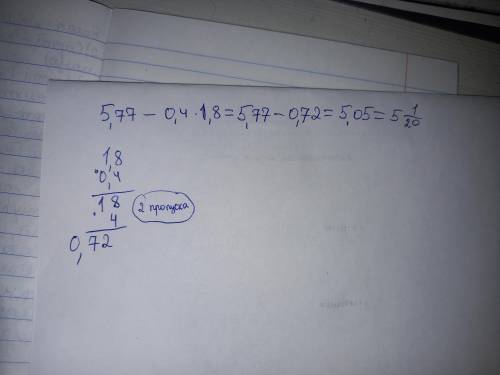 5,77 - 0,4 · 1,8 = 5,77 - 0,72 = 5,05 = 5 1/20
1,8
·0,4
·18
4
2 пропуска
0,72